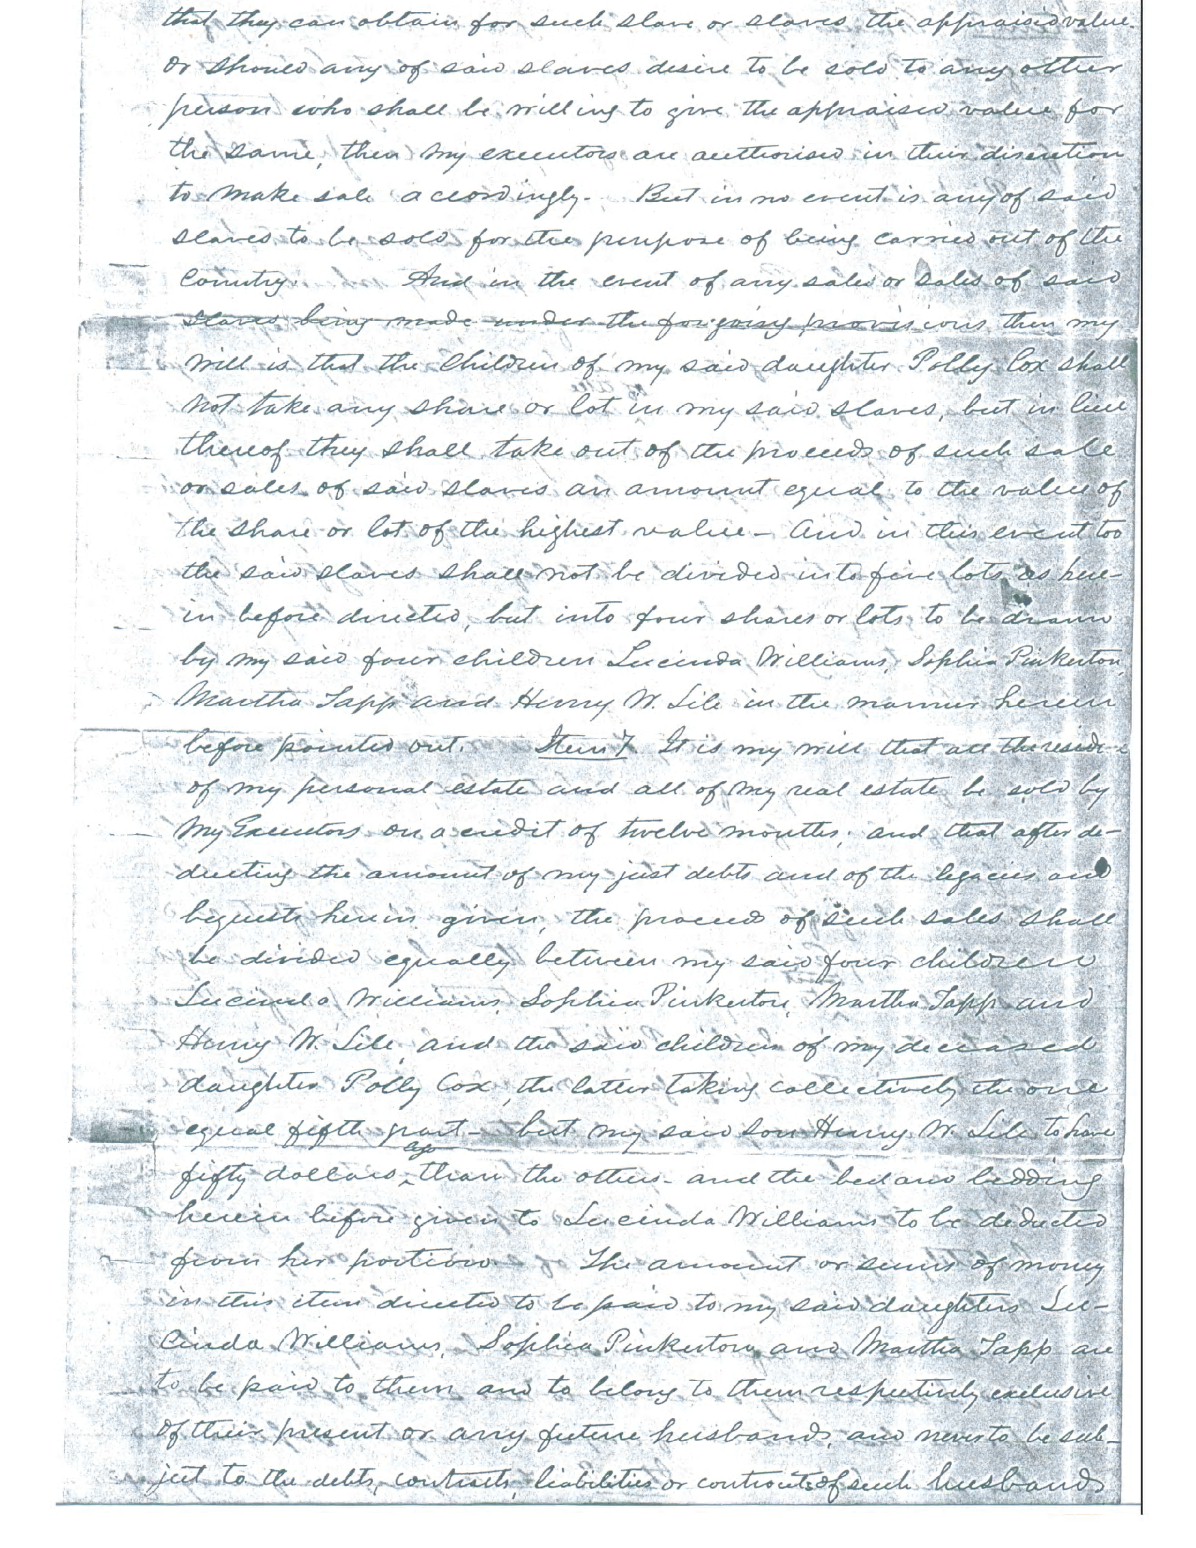 that they can obtain for such slave or slaves the appraised value.
Or should any of said slaves desire to be sold to any other
person who shall be willing to give the appraised value for
the same, then my executors are authorised in their discretion
to make sale accordingly. But in no event is any of said
slaves to be sold for the purpose of being carried out of the
Country. And in the event of any sale or sales of said
slaves being made under the foregoing provisions then my
will is that the children of my said daughter Polly Cox shall
not take any share or lot in my said slaves, but in lieu
thereof they shall take out of the proceeds of such sale
or sales of said slaves an amount equal to the value of
the share or lot of the highest value - And in this event too
the said slaves shall not be divided into five lots as here-
in before directed, but into four shares or lots to be drawn
by my said four children Lucinda Williams, Sophia Pinkerton,
Martha Tapp and Henry W. Lile in the manner herein
before pointed out. Item 7 It is my will that all the residue
of my personal estate and all of my real estate be sold by
My Executors on a credit of twelve months, and that after de-
ducting the amount of my just debts and of the legacies and
bequests herein given, the proceeds of such sales shall
be divided equally between my said four children
Lucinda Williams, Sophia Pinkerton, Martha Tapp and
Henry W. Lile, and the said children of my deceased
daughter Polly Cox, the latter taking collectively the one
equal fifth part - but my said son Henry W. Lile to have
fifty dollars than the others - and the bed and bedding
herein before given to Lucinda Williams to be deducted
from her portion The amount or sums of money
in this item directed to be paid to my said daughters Lu-
cinda Williams, Sophia Pinkerton and Martha Tapp are
to be paid to them and to belong to them respectively exclusive
of their present or any future husbands, and never to be sub-
ject to the debts, contracts, liabilities or of such husbands